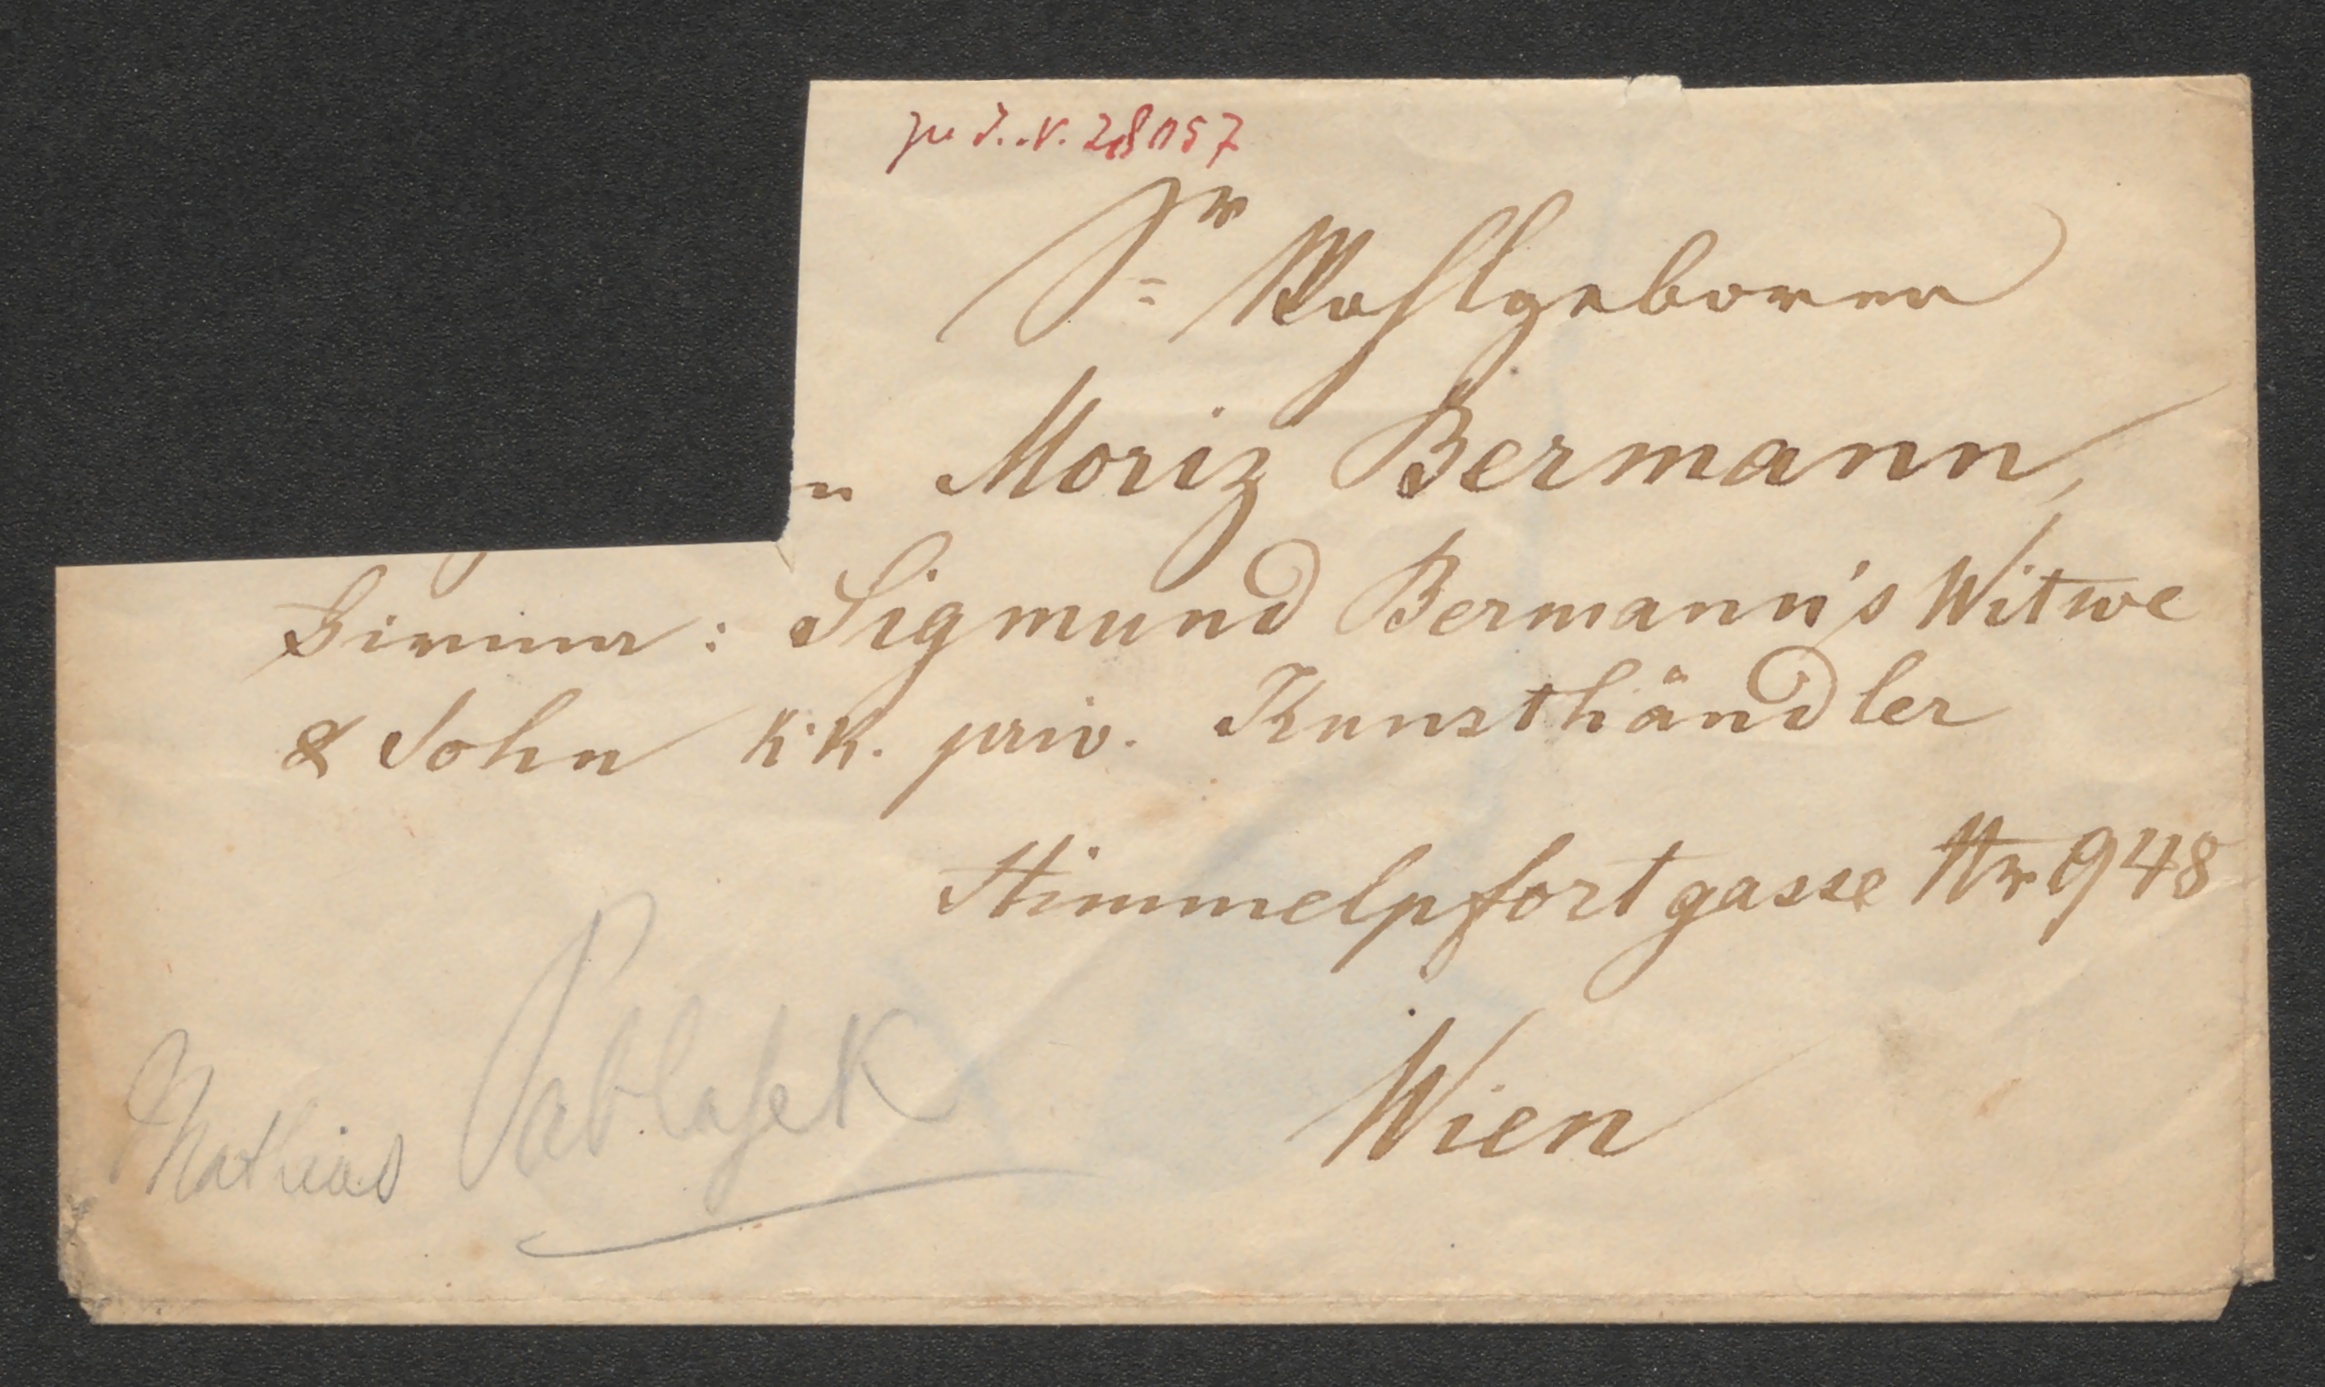 zu I.N. 28157
Sr Wohlgeboren
n Moriz Bermann,
Firma: Sigmund Bermann's Witwe
& Sohn k.k. priv. Kunsthändler
Himmelpfortgasse Nr 948
Wien
Mathias Pablasek